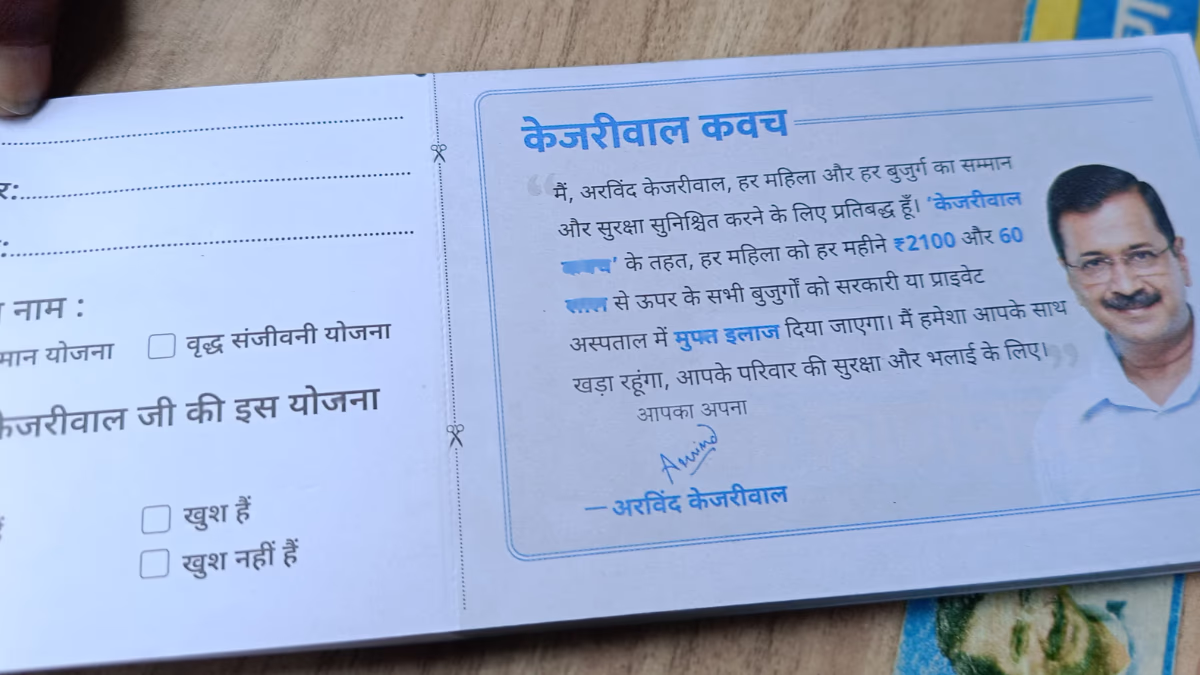 र:
नाम :
मान योजना वृद्ध संजीवनी योजना
केजरीवाल जी की इस योजना
खुश हैं
खुश नहीं हैं
केजरीवाल कवच
“मैं, अरविंद केजरीवाल, हर महिला और हर बुजुर्ग का सम्मान
और सुरक्षा सुनिश्चित करने के लिए प्रतिबद्ध हूँ। 'केजरीवाल
' के तहत, हर महिला को हर महीने ₹2100 और 60
से ऊपर के सभी बुजुर्गों को सरकारी या प्राइवेट
अस्पताल में मुफ्त इलाज दिया जाएगा। मैं हमेशा आपके साथ
खड़ा रहूंगा, आपके परिवार की सुरक्षा और भलाई के लिए।”
आपका अपना
Arvind
— अरविंद केजरीवाल